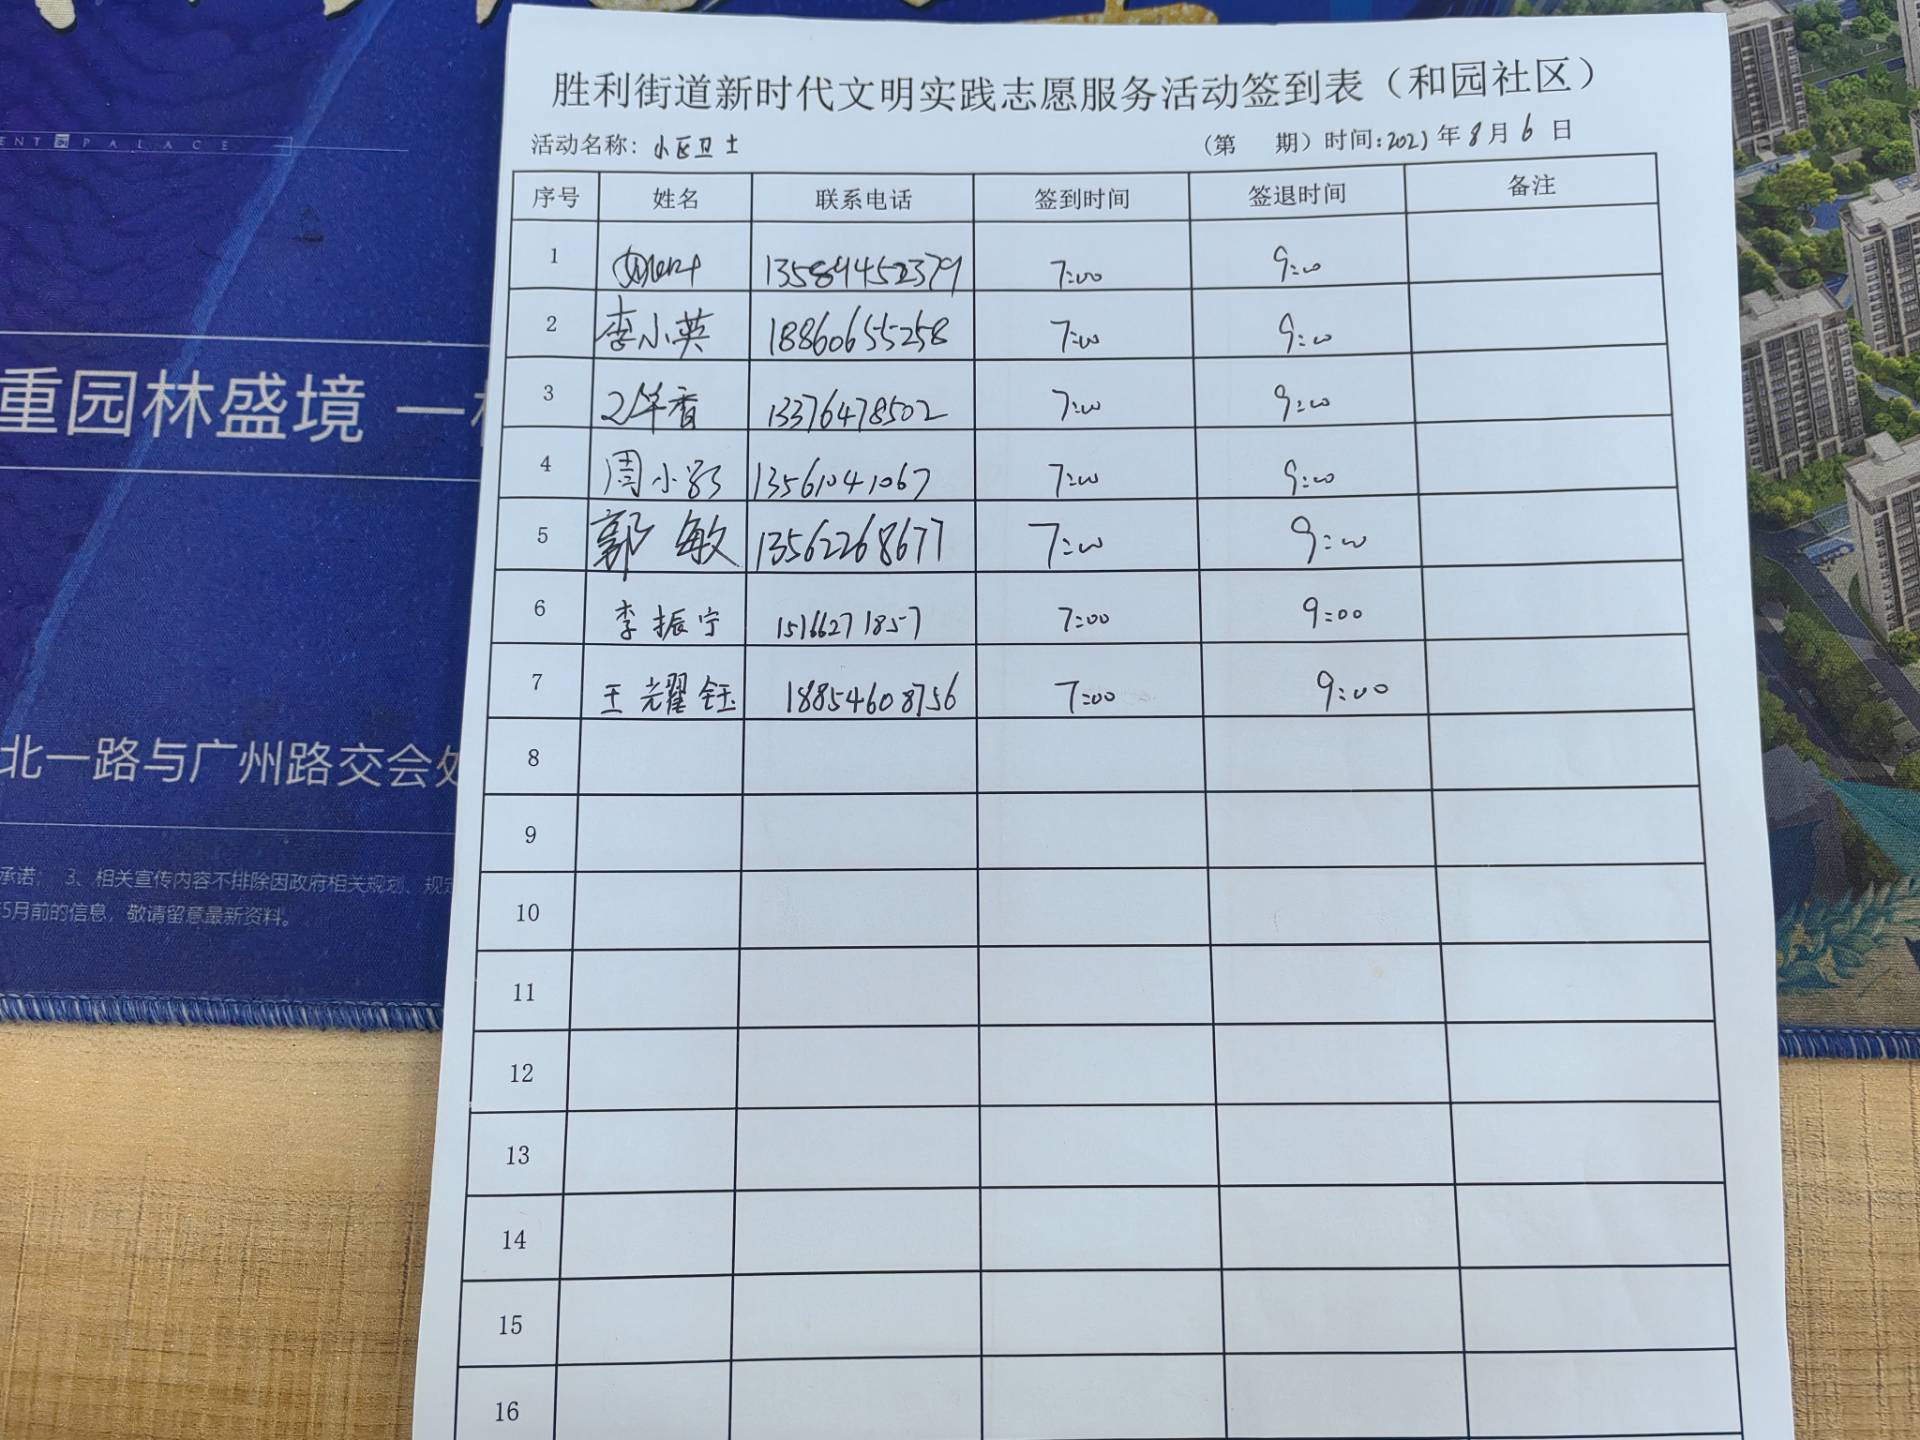 胜利街道新时代文明实践志愿服务活动签到表（和园社区）
活动名称：小区卫士 （第 期）时间:2023年8月6日
序号 姓名 联系电话 签到时间 签退时间 备注
1 13589452379 7:00 9:00
2 李小英 18860655258 7:00 9:00
3 华香 13376478502 7:00 9:00
4 周小 13561041067 7:00 9:00
5 郭敏 13562268677 7:00 9:00
6 李振宁 15166271857 7:00 9:00
7 王光耀钰 18854608756 7:00 9:00
8
9
10
11
12
13
14
15
16
ENT PALACE
重园林盛境 一
北一路与广州路交会处
承诺； 3、相关宣传内容不排除因政府相关规划、规定
5月前的信息，敬请留意最新资料。